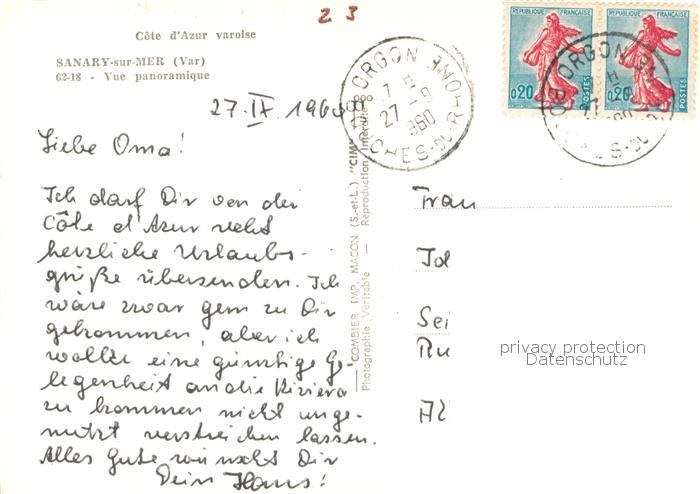 2 3
Côte d'Azur varoise
SANARY-sur-MER (Var)
62-18 - Vue panoramique
27. IX. 1960
Liebe Oma!
Ich darf Dir von der
Côte d'Azur recht
herzliche Urlaubs-
grüße übersenden. Ich
wäre zwar gern zu Dir
gekommen, aber ich
wollte eine günstige Ge-
legenheit an die Riviera
zu kommen nicht unge-
nutzt verstreichen lassen.
Alles Gute wünscht Dir
Dein Hans!
COMBIER IMP. MACON (S.-et-L.) "CIM"
Photographie Véritable — Reproduction Interdite
ORGON
27 - 9
1960
BCHES-DU-RHONE
REPUBLIQUE FRANÇAISE
0,20
POSTES
REPUBLIQUE FRANÇAISE
0,20
POSTES
ORGON
Frau
Id
Sei
Ru
privacy protection
Datenschutz